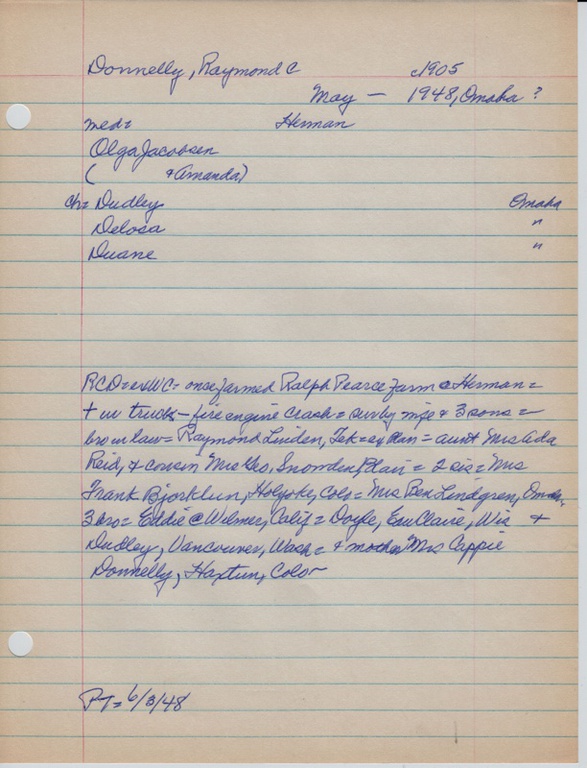 Donnelly, Raymond C c1905
May — 1948, Omaha ?
med= Herman
Olga Jacobsen
( + Amanda)
ch= Dudley Omaha
Delosa "
Duane "
RCD = exWC = once farmed Ralph Pearce farm @ Herman =
+ in truck – fire engine crash = surv by wife & 3 sons =
bro in law = Raymond Linden, Tek = ex Plan = aunt Mrs Ada
Reid, & cousin Mrs Geo. Snowden, Blair = 2 sis = Mrs
Frank Bjorklun, Holyoke, Colo = Mrs Ben Lindgren, Omaha,
3 bro = Eddie @ Wilmer, Calif = Doyle, Eau Claire, Wis &
Dudley, Vancouver, Wash = & mother Mrs Cappie
Donnelly, Haxtun, Color
PT = 6/3/48